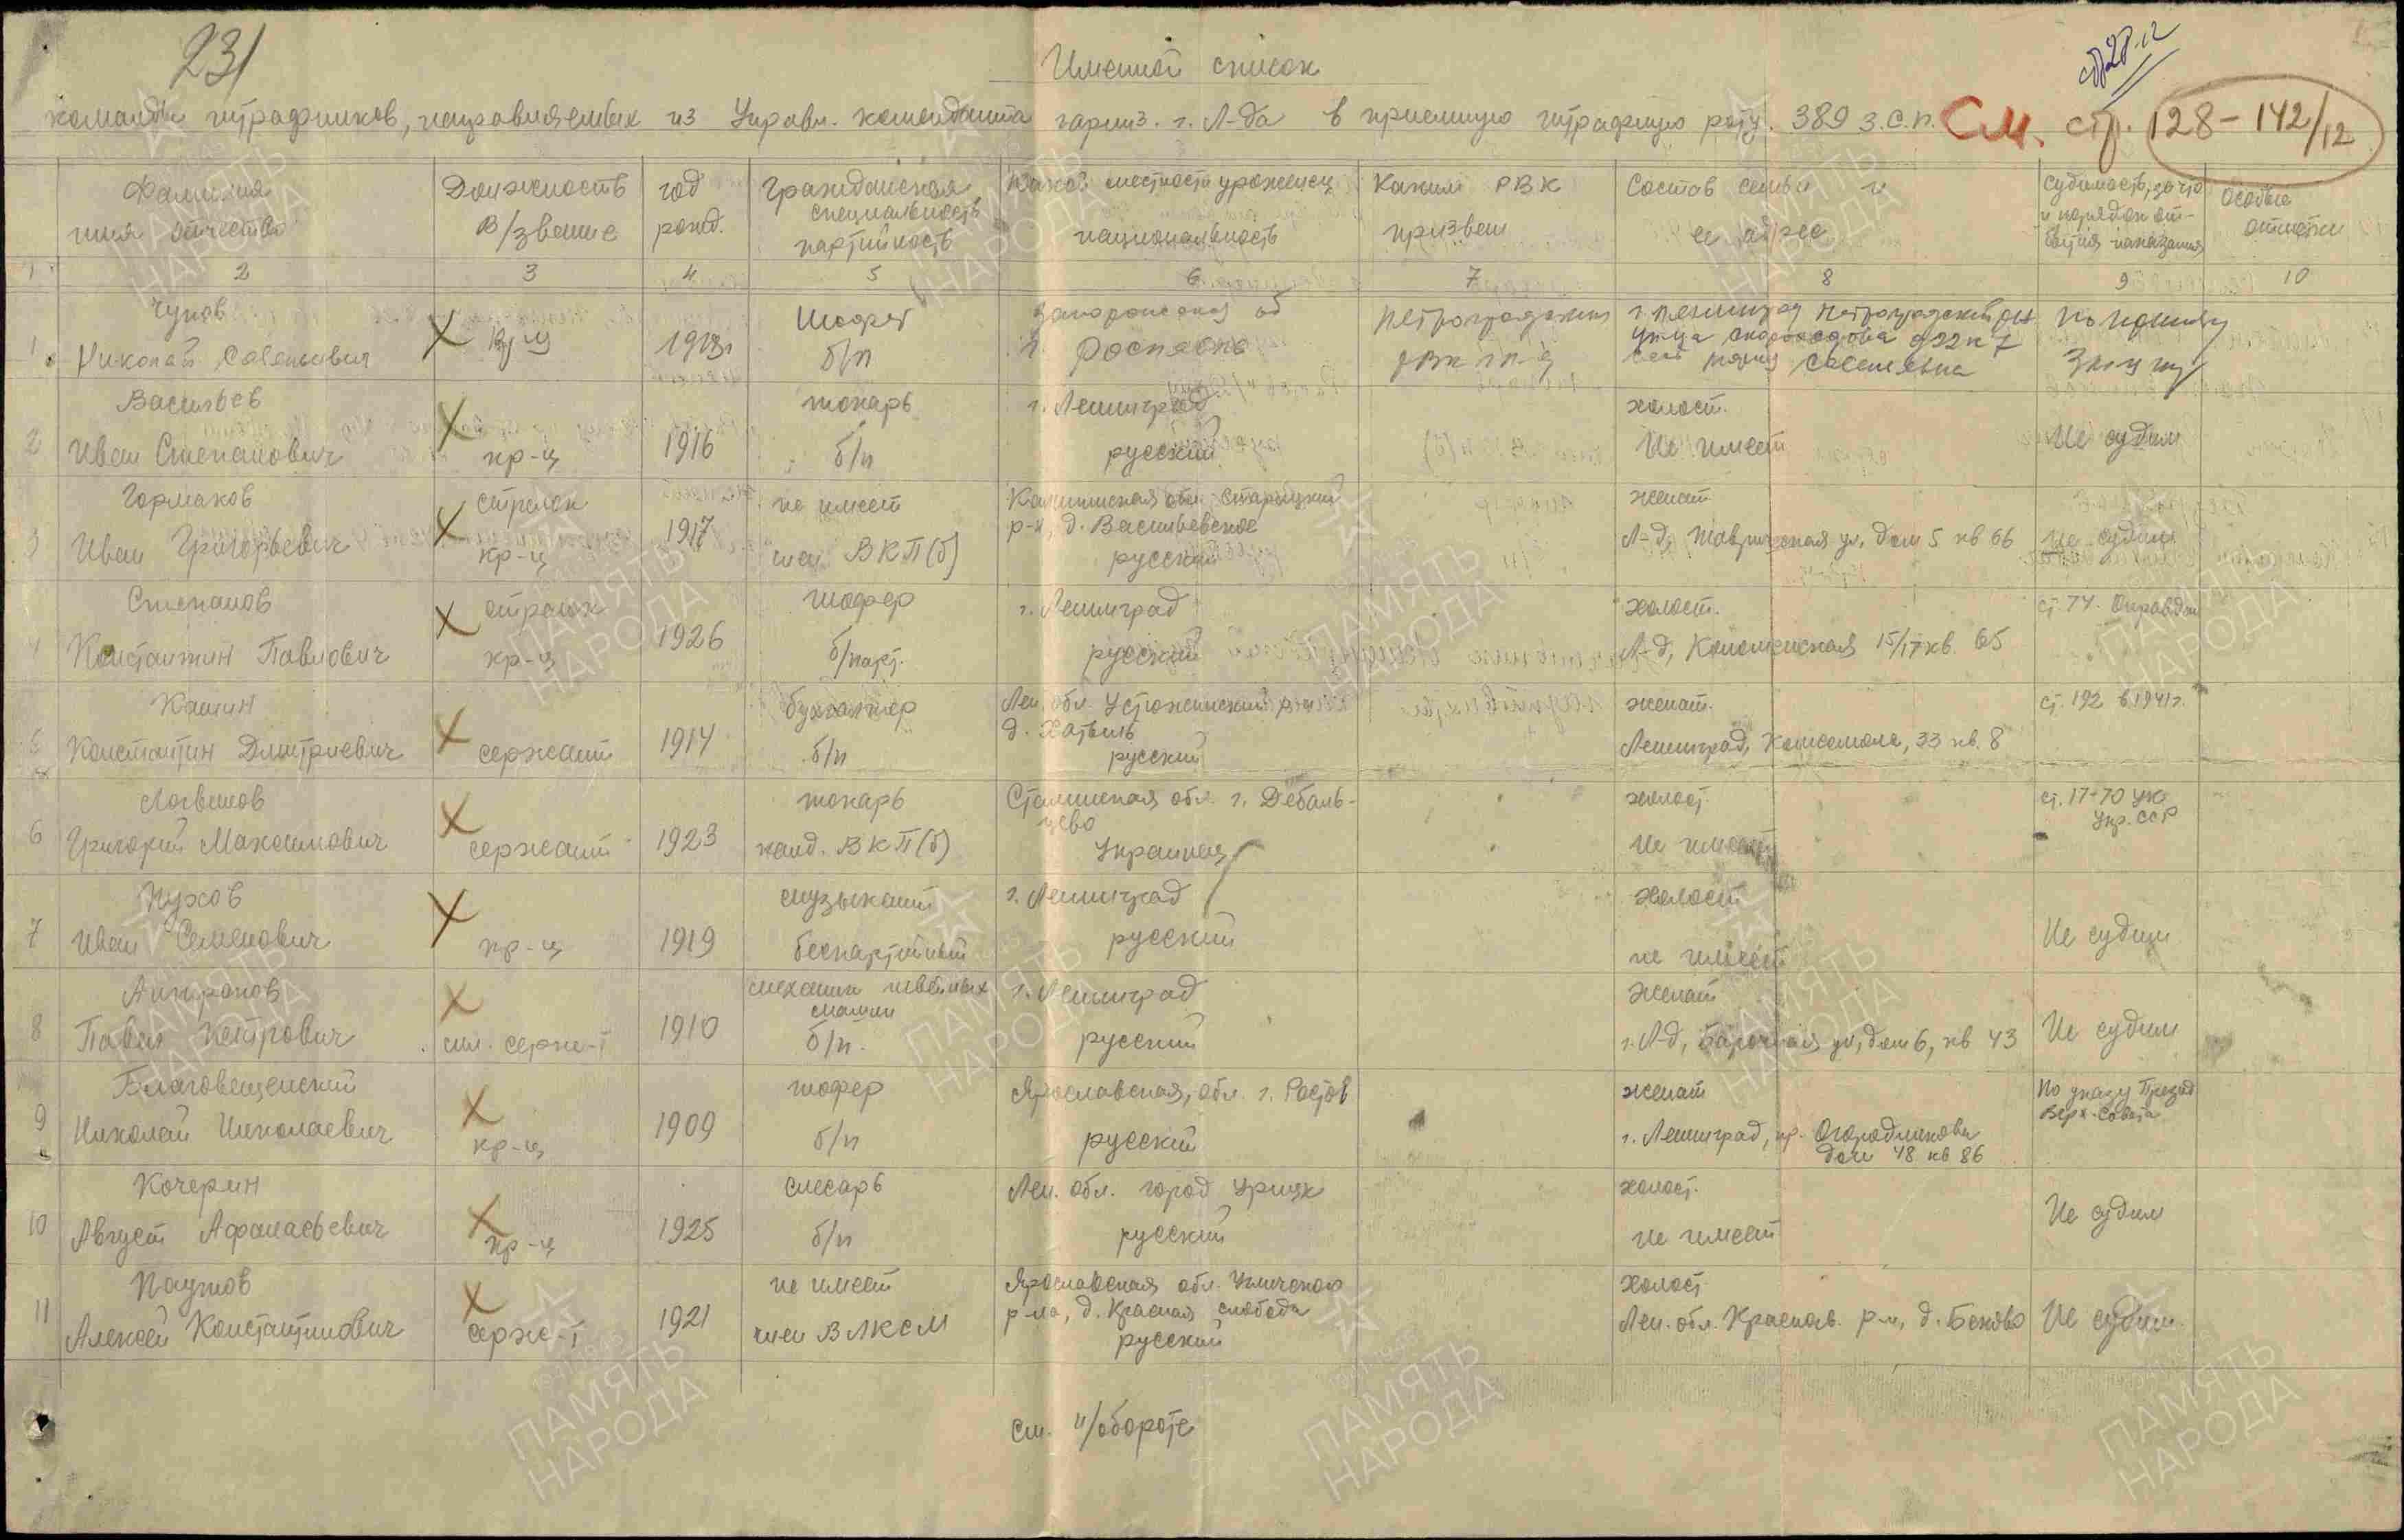 231
Именной список
стр 28-12
команды штрафников, направляемых из Управл. коменданта гарниз. г. Л-да в приемную штрафную роту. 389 з.с.п. См. стр. 128-142/12
Фамилия имя отчество
Должность в/звание
год рожд.
Гражданская специальность партийность
Какой местности уроженец национальность
Каким РВК призван
Состав семьи и ее адрес
Судимость, за что и порядок отбытия наказания
Особые отметки
1 2 3 4 5 6 7 8 9 10
1 Чупов
Николай Савельевич
кр-ц
1913г
Шофер
б/п
Запорожской об
Петроградским
РВК г Л-д
г. Ленинград Петроградский р-н
улица Скороходова д 22 к 7
Савельевна
2 Васильев
Иван Степанович
кр-ц
1916
токарь
б/п
г. Ленинград
русский
холост.
Не имеет
Не судим
3 Гормаков
Иван Григорьевич
стрелок
кр-ц
1917
не имеет
член ВКП(б)
Калининская обл. Старицкий
р-н, д. Васильевское
русский
женат
Л-д, Таврическая ул, дом 5 кв 66
Не судим
4 Степанов
Константин Павлович
стрелок
кр-ц
1926
шофер
б/парт.
г. Ленинград
русский
холост.
Л-д, Коломенская 15/17 кв. 65
ст 74. Оправдан
5 Кашин
Константин Дмитриевич
сержант
1914
бухгалтер
б/п
Лен. обл. Устюженский р-н
д.
русский
женат.
Ленинград, Комсомола, 33 кв. 8
ст. 192 в 1941г.
6 Логвенов
Григорий Максимович
сержант
1923
токарь
канд. ВКП(б)
Сталинская обл. г. Дебаль-
цево
Украинец
холост.
не имеет
ст. 17-70 УК
Укр. ССР
7 Пухов
Иван Семенович
кр-ц
1919
музыкант
беспартийный
г. Ленинград
русский
холост
не имеет
Не судим
8 Антропов
Павел Петрович
мл. серж-т
1910
механик швейных
машин
б/п.
г. Ленинград
русский
женат
г. Л-д, Барочная ул, дом 6, кв 43
Не судим
9 Благовещенский
Николай Николаевич
кр-ц
1909
шофер
б/п
Ярославская, обл. г. Ростов
русский
женат
г. Ленинград, пр. Огородникова
дом 48 кв 86
По указу Презид
Верх. Совета
10 Кочерин
Август Афанасьевич
кр-ц
1925
слесарь
б/п
Лен. обл. город Урицк
русский
холост.
не имеет
Не судим
11 Паутов
Алексей Константинович
серж-т
1921
не имеет
член ВЛКСМ
Ярославская обл. Угличского
р-на, д. Красная слобода
русский
холост.
Лен. обл. Краснов. р-н, д. Беково
Не судим
См. н/обороте